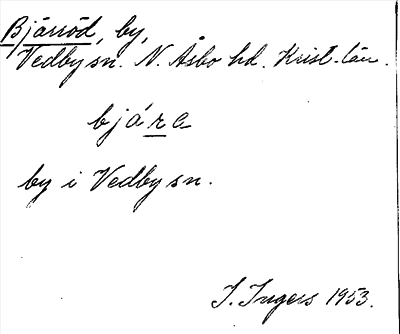 Bjärröd, by,
Vedby sn. N. Åsbo hd. Krist. län.
bjára
by i Vedby sn.
I. Ingers 1953.